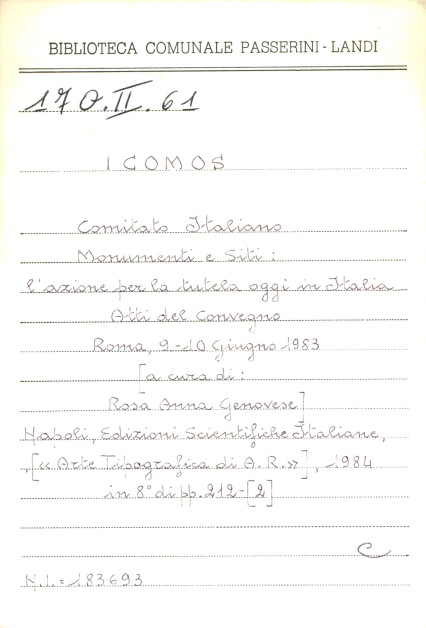 BIBLIOTECA COMUNALE PASSERINI - LANDI
170.II.61
ICOMOS
Comitato Italiano
Monumenti e Siti :
l'azione per la tutela oggi in Italia
Atti del Convegno
Roma, 9-10 Giugno 1983
[a cura di :
Rosa Anna Genovese]
Napoli, Edizioni Scientifiche Italiane,
[« Arte Tipografica di A. R. »], 1984
in 8° di pp. 212-[2]
C
N.I. = 183693